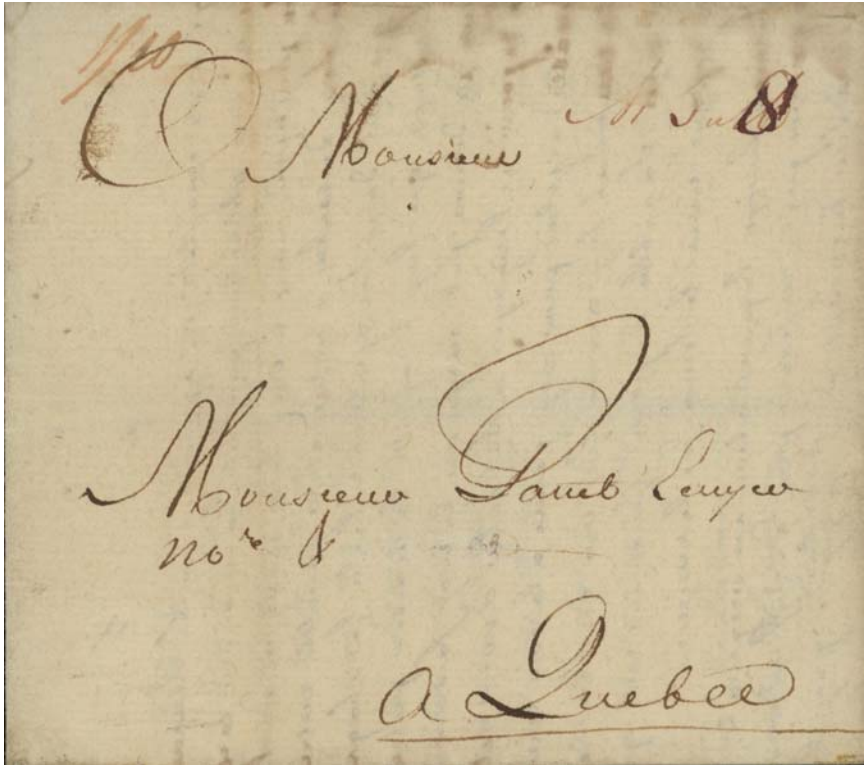 8
Monsieur
Monsieur Panet Ecuyer
nore &
a Quebec